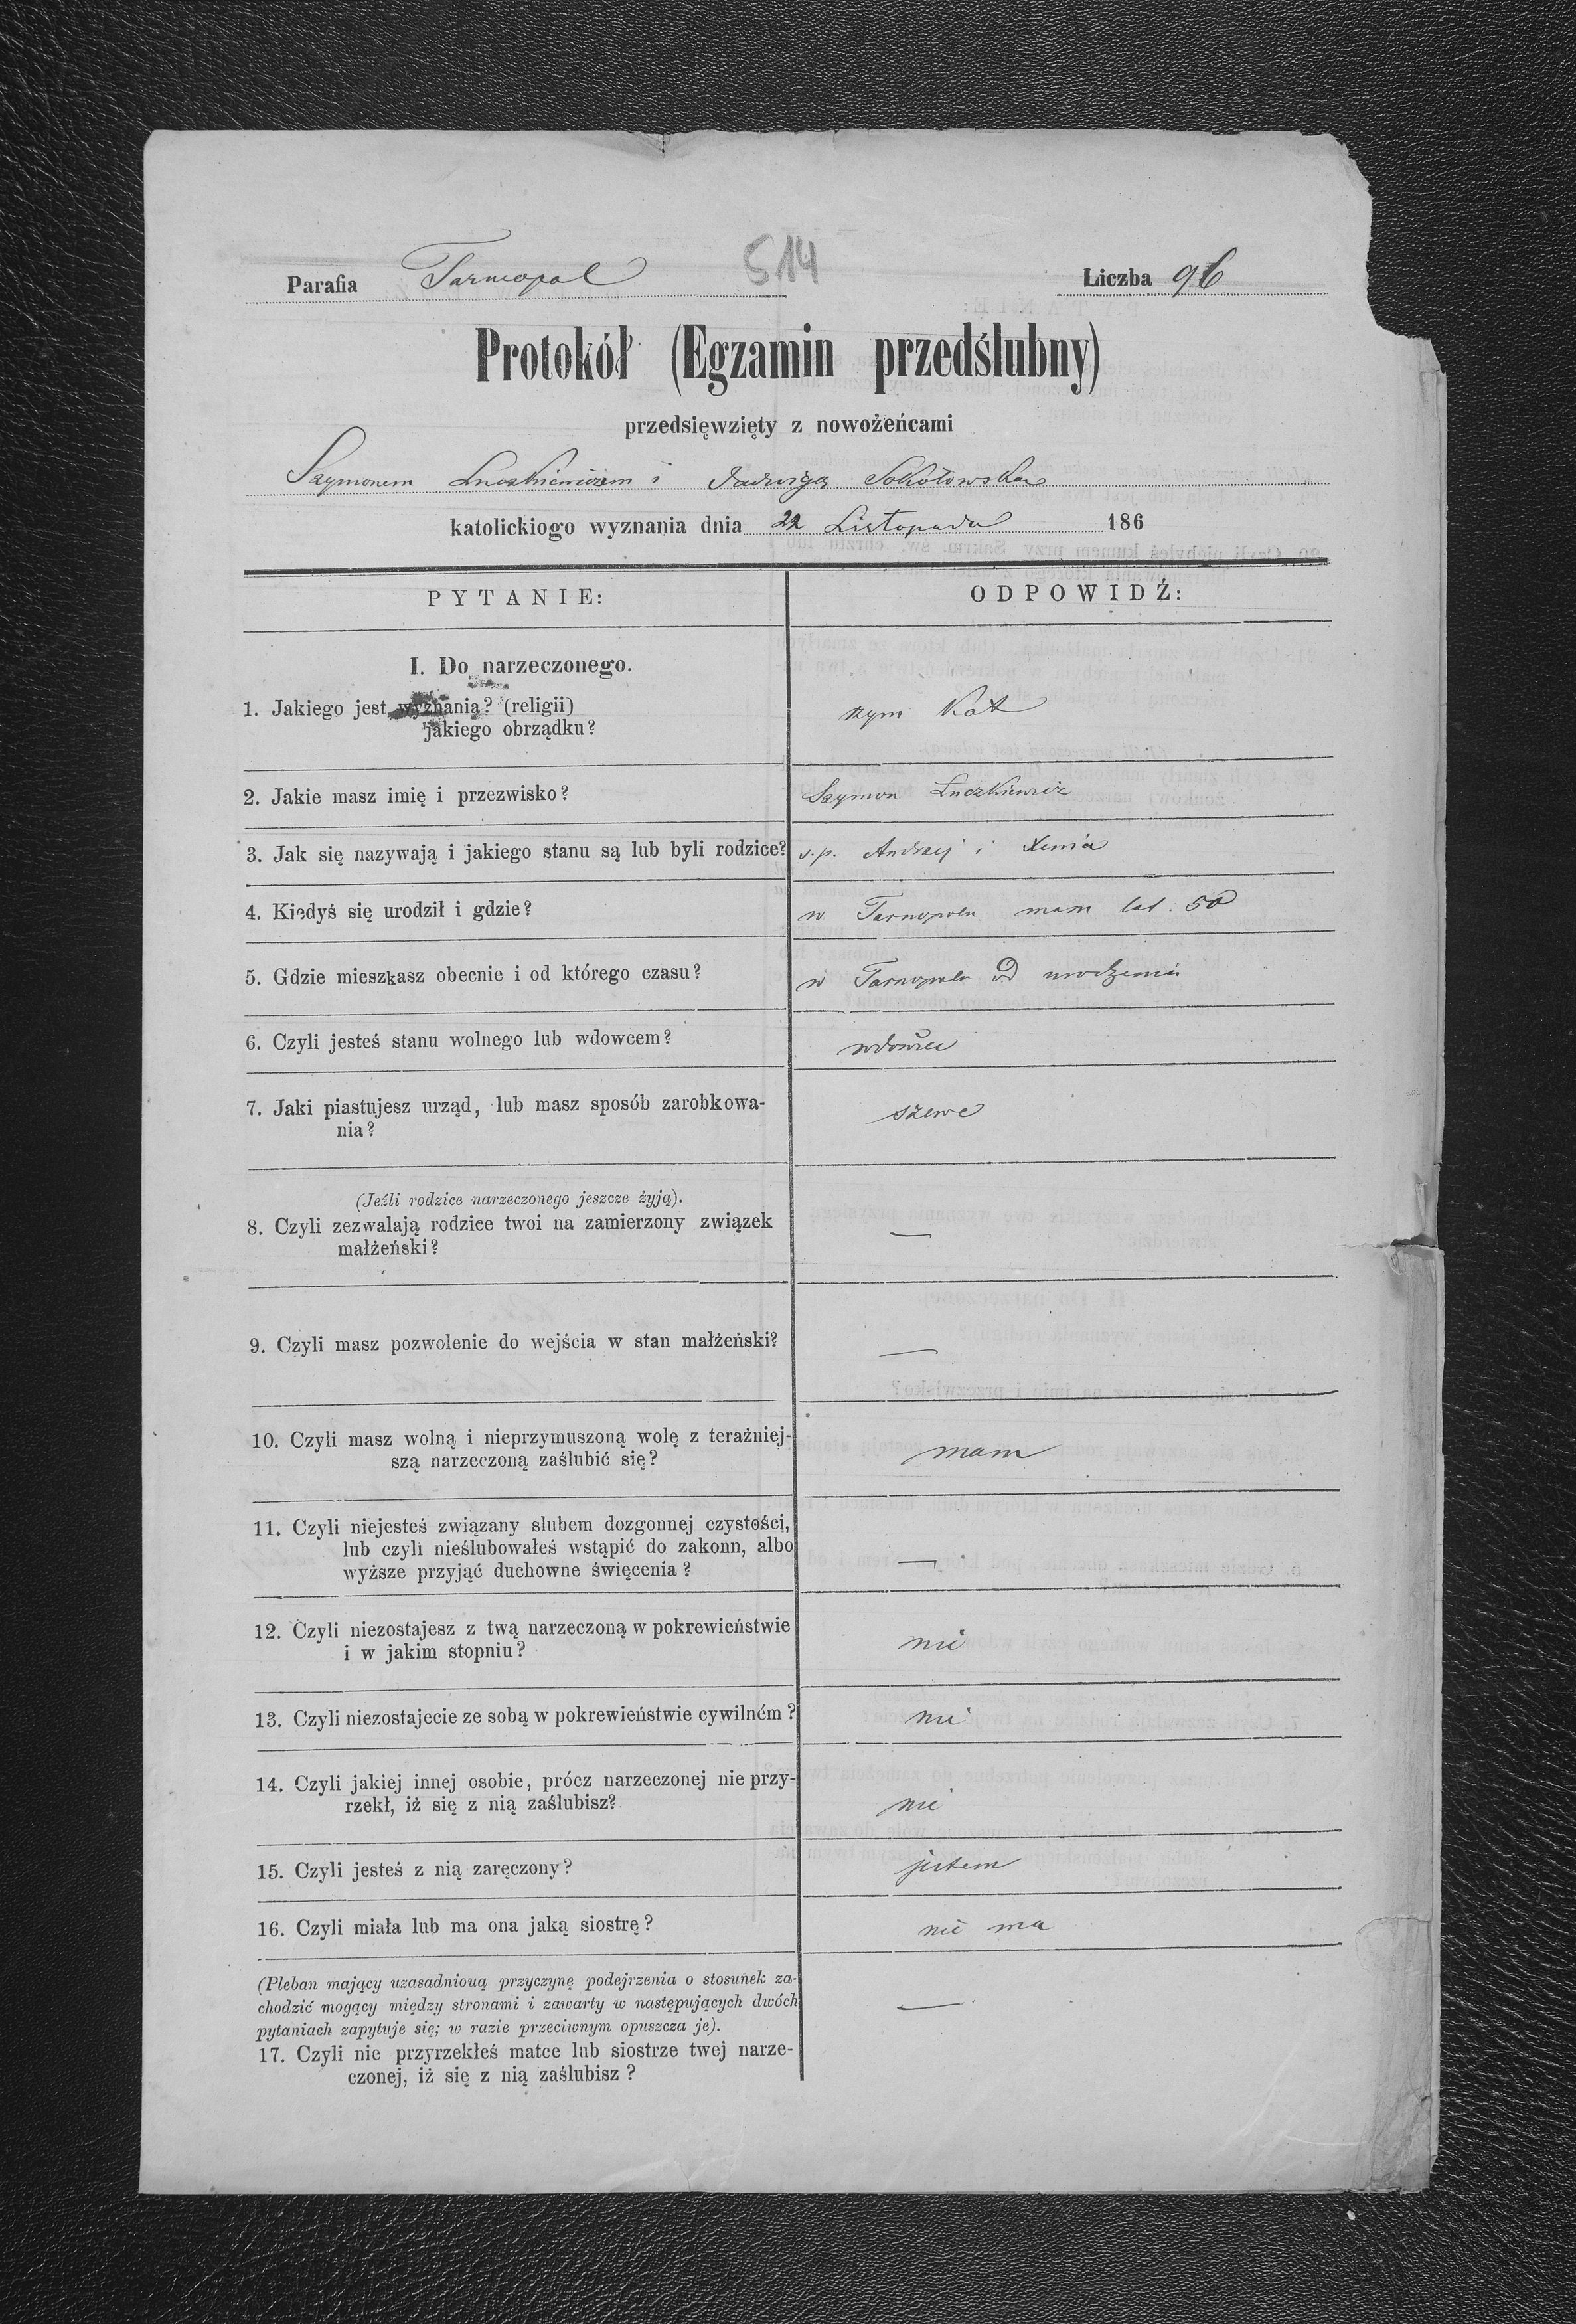 514
Parafia Tarnopol Liczba 96
Protokół (Egzamin przedślubny)
przedsięwzięty z nowożeńcami
Szymonem Łuczkiewiczem i Jadwigą Sokołowską
katolickiogo wyznania dnia 22 Listopada 186
PYTANIE: ODPOWIDŹ:
I. Do narzeczonego.
1. Jakiego jest wyznania? (religii)
jakiego obrządku? rzym Kat
2. Jakie masz imię i przezwisko? Szymon Łuczkiewicz
3. Jak się nazywają i jakiego stanu są lub byli rodzice? s.p. Andrzej i Xenia
4. Kiedyś się urodził i gdzie? w Tarnopolu mam lat. 50
5. Gdzie mieszkasz obecnie i od którego czasu? w Tarnopolu od urodzenia
6. Czyli jesteś stanu wolnego lub wdowcem? wdowiec
7. Jaki piastujesz urząd, lub masz sposób zarobkowa-
nia? szewc
(Jeźli rodzice narzeczonego jeszcze żyją).
8. Czyli zezwalają rodzice twoi na zamierzony związek
małżeński? —
9. Czyli masz pozwolenie do wejścia w stan małżeński? —
10. Czyli masz wolną i nieprzymuszoną wolę z teraźniej-
szą narzeczoną zaślubić się? mam
11. Czyli niejesteś związany ślubem dozgonnej czystości,
lub czyli nieślubowałeś wstąpić do zakonn, albo
wyższe przyjąć duchowne święcenia? —
12. Czyli niezostajesz z twą narzeczoną w pokrewieństwie
i w jakim stopniu? nie
13. Czyli niezostajecie ze sobą w pokrewieństwie cywilném? nie
14. Czyli jakiej innej osobie, prócz narzeczonej nie przy-
rzekł, iż się z nią zaślubisz? nie
15. Czyli jesteś z nią zaręczony? jestem
16. Czyli miała lub ma ona jaką siostrę? nie ma
(Pleban mający uzasadnioną przyczynę podejrzenia o stosunek za-
chodzić mogący między stronami i zawarty w następujących dwóch
pytaniach zapytuje się; w razie przeciwnym opuszcza je). —
17. Czyli nie przyrzekłeś matce lub siostrze twej narze-
czonej, iż się z nią zaślubisz?